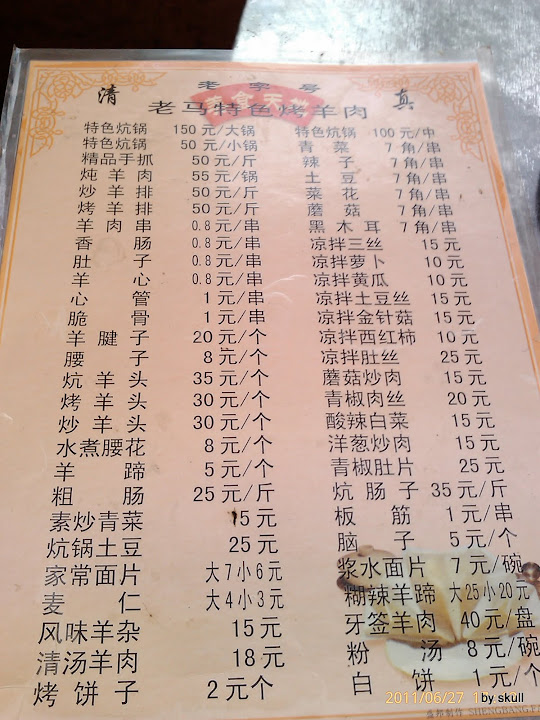 老字号
清 美食天 真
老马特色烤羊肉
特色炕锅 150元/大锅
特色炕锅 50元/小锅
精品手抓 50元/斤
炖羊肉 55元/锅
炒羊排 50元/斤
烤羊排 50元/斤
羊肉串 0.8元/串
香肠 0.8元/串
肚子 0.8元/串
羊心 0.8元/串
心管 1元/串
脆骨 1元/串
羊腱子 20元/个
腰子 8元/个
炕羊头 35元/个
烤羊头 30元/个
炒羊头 30元/个
水煮腰花 8元/个
羊蹄 5元/个
粗肠 25元/斤
素炒青菜 15元
炕锅土豆 25元
家常面片 大7小6元
麦仁 大4小3元
风味羊杂 15元
清汤羊肉 18元
烤饼子 2元/个
特色炕锅 100元/中
青菜 7角/串
辣子 7角/串
土豆 7角/串
菜花 7角/串
蘑菇 7角/串
黑木耳 7角/串
凉拌三丝 15元
凉拌萝卜 10元
凉拌黄瓜 10元
凉拌土豆丝 15元
凉拌金针菇 15元
凉拌西红柿 10元
凉拌肚丝 25元
蘑菇炒肉 15元
青椒肉丝 20元
酸辣白菜 15元
洋葱炒肉 15元
青椒肚片 25元
炕肠子 35元/斤
板筋 1元/串
脑子 5元/个
浆水面片 7元/碗
糊辣羊蹄 大25小20元
牙签羊肉 40元/盘
粉汤 8元/碗
白饼 1元/个
2011/06/27 1by skull